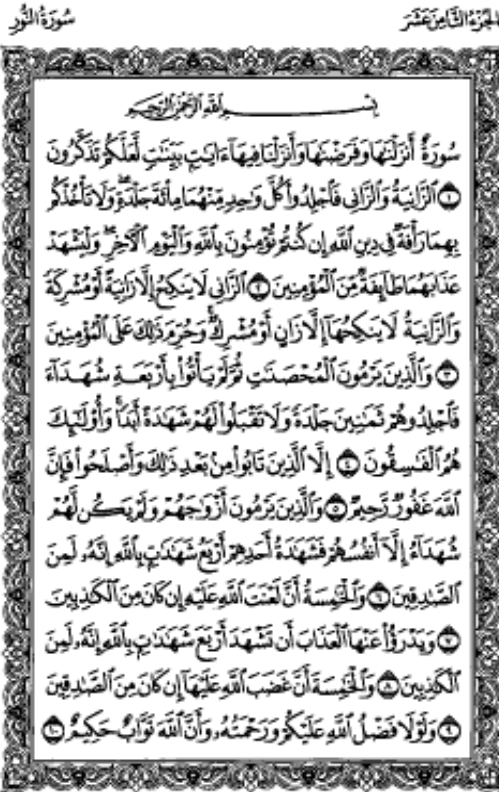 الجزء الثامن عشر
سورة النور
بِسْمِ اللَّهِ الرَّحْمَٰنِ الرَّحِيمِ
سُورَةٌ أَنزَلْنَٰهَا وَفَرَضْنَٰهَا وَأَنزَلْنَا فِيهَآ ءَايَٰتٍۭ بَيِّنَٰتٍ لَّعَلَّكُمْ تَذَكَّرُونَ
١ ٱلزَّانِيَةُ وَٱلزَّانِى فَٱجْلِدُوا۟ كُلَّ وَٰحِدٍ مِّنْهُمَا مِا۟ئَةَ جَلْدَةٍ ۖ وَلَا تَأْخُذْكُم
بِهِمَا رَأْفَةٌ فِى دِينِ ٱللَّهِ إِن كُنتُمْ تُؤْمِنُونَ بِٱللَّهِ وَٱلْيَوْمِ ٱلْـَٔاخِرِ ۖ وَلْيَشْهَدْ
عَذَابَهُمَا طَآئِفَةٌ مِّنَ ٱلْمُؤْمِنِينَ ٢ ٱلزَّانِى لَا يَنكِحُ إِلَّا زَانِيَةً أَوْ مُشْرِكَةً
وَٱلزَّانِيَةُ لَا يَنكِحُهَآ إِلَّا زَانٍ أَوْ مُشْرِكٌ ۚ وَحُرِّمَ ذَٰلِكَ عَلَى ٱلْمُؤْمِنِينَ
٣ وَٱلَّذِينَ يَرْمُونَ ٱلْمُحْصَنَٰتِ ثُمَّ لَمْ يَأْتُوا۟ بِأَرْبَعَةِ شُهَدَآءَ
فَٱجْلِدُوهُمْ ثَمَٰنِينَ جَلْدَةً وَلَا تَقْبَلُوا۟ لَهُمْ شَهَٰدَةً أَبَدًا ۚ وَأُو۟لَٰٓئِكَ
هُمُ ٱلْفَٰسِقُونَ ٤ إِلَّا ٱلَّذِينَ تَابُوا۟ مِنۢ بَعْدِ ذَٰلِكَ وَأَصْلَحُوا۟ فَإِنَّ
ٱللَّهَ غَفُورٌ رَّحِيمٌ ٥ وَٱلَّذِينَ يَرْمُونَ أَزْوَٰجَهُمْ وَلَمْ يَكُن لَّهُمْ
شُهَدَآءُ إِلَّآ أَنفُسُهُمْ فَشَهَٰدَةُ أَحَدِهِمْ أَرْبَعُ شَهَٰدَٰتٍۭ بِٱللَّهِ ۙ إِنَّهُۥ لَمِنَ
ٱلصَّٰدِقِينَ ٦ وَٱلْخَٰمِسَةُ أَنَّ لَعْنَتَ ٱللَّهِ عَلَيْهِ إِن كَانَ مِنَ ٱلْكَٰذِبِينَ
٧ وَيَدْرَؤُا۟ عَنْهَا ٱلْعَذَابَ أَن تَشْهَدَ أَرْبَعَ شَهَٰدَٰتٍۭ بِٱللَّهِ ۙ إِنَّهُۥ لَمِنَ
ٱلْكَٰذِبِينَ ٨ وَٱلْخَٰمِسَةَ أَنَّ غَضَبَ ٱللَّهِ عَلَيْهَآ إِن كَانَ مِنَ ٱلصَّٰدِقِينَ
٩ وَلَوْلَا فَضْلُ ٱللَّهِ عَلَيْكُمْ وَرَحْمَتُهُۥ وَأَنَّ ٱللَّهَ تَوَّابٌ حَكِيمٌ ١٠